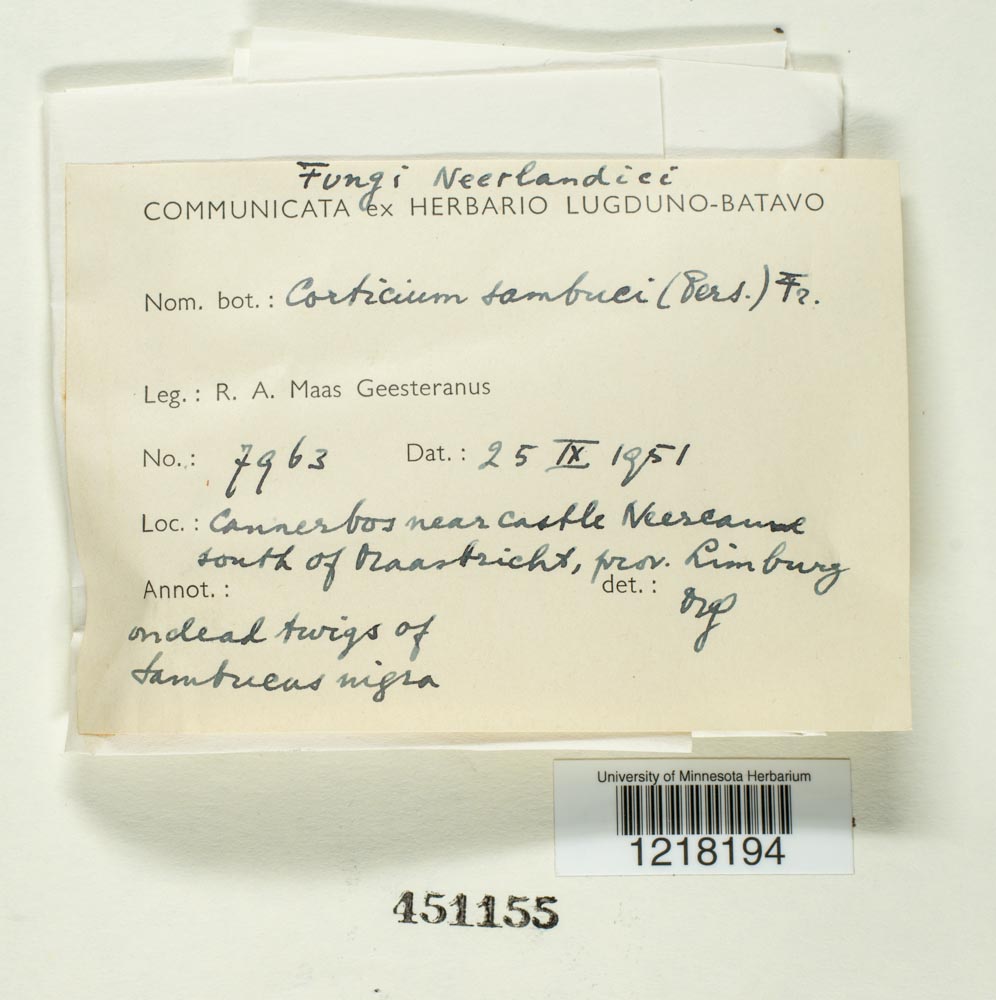 Fungi Neerlandici
COMMUNICATA ex HERBARIO LUGDUNO-BATAVO
Nom. bot.: Corticium sambuci (Pers.) Fr.
Leg.: R. A. Maas Geesteranus
No.: 7963 Dat.: 25 IX 1951
Loc.: Cannerbos near castle Neercanne
south of Maastricht, prov. Limburg
Annot.: det.:
on dead twigs of
Sambucus nigra
University of Minnesota Herbarium
1218194
451155